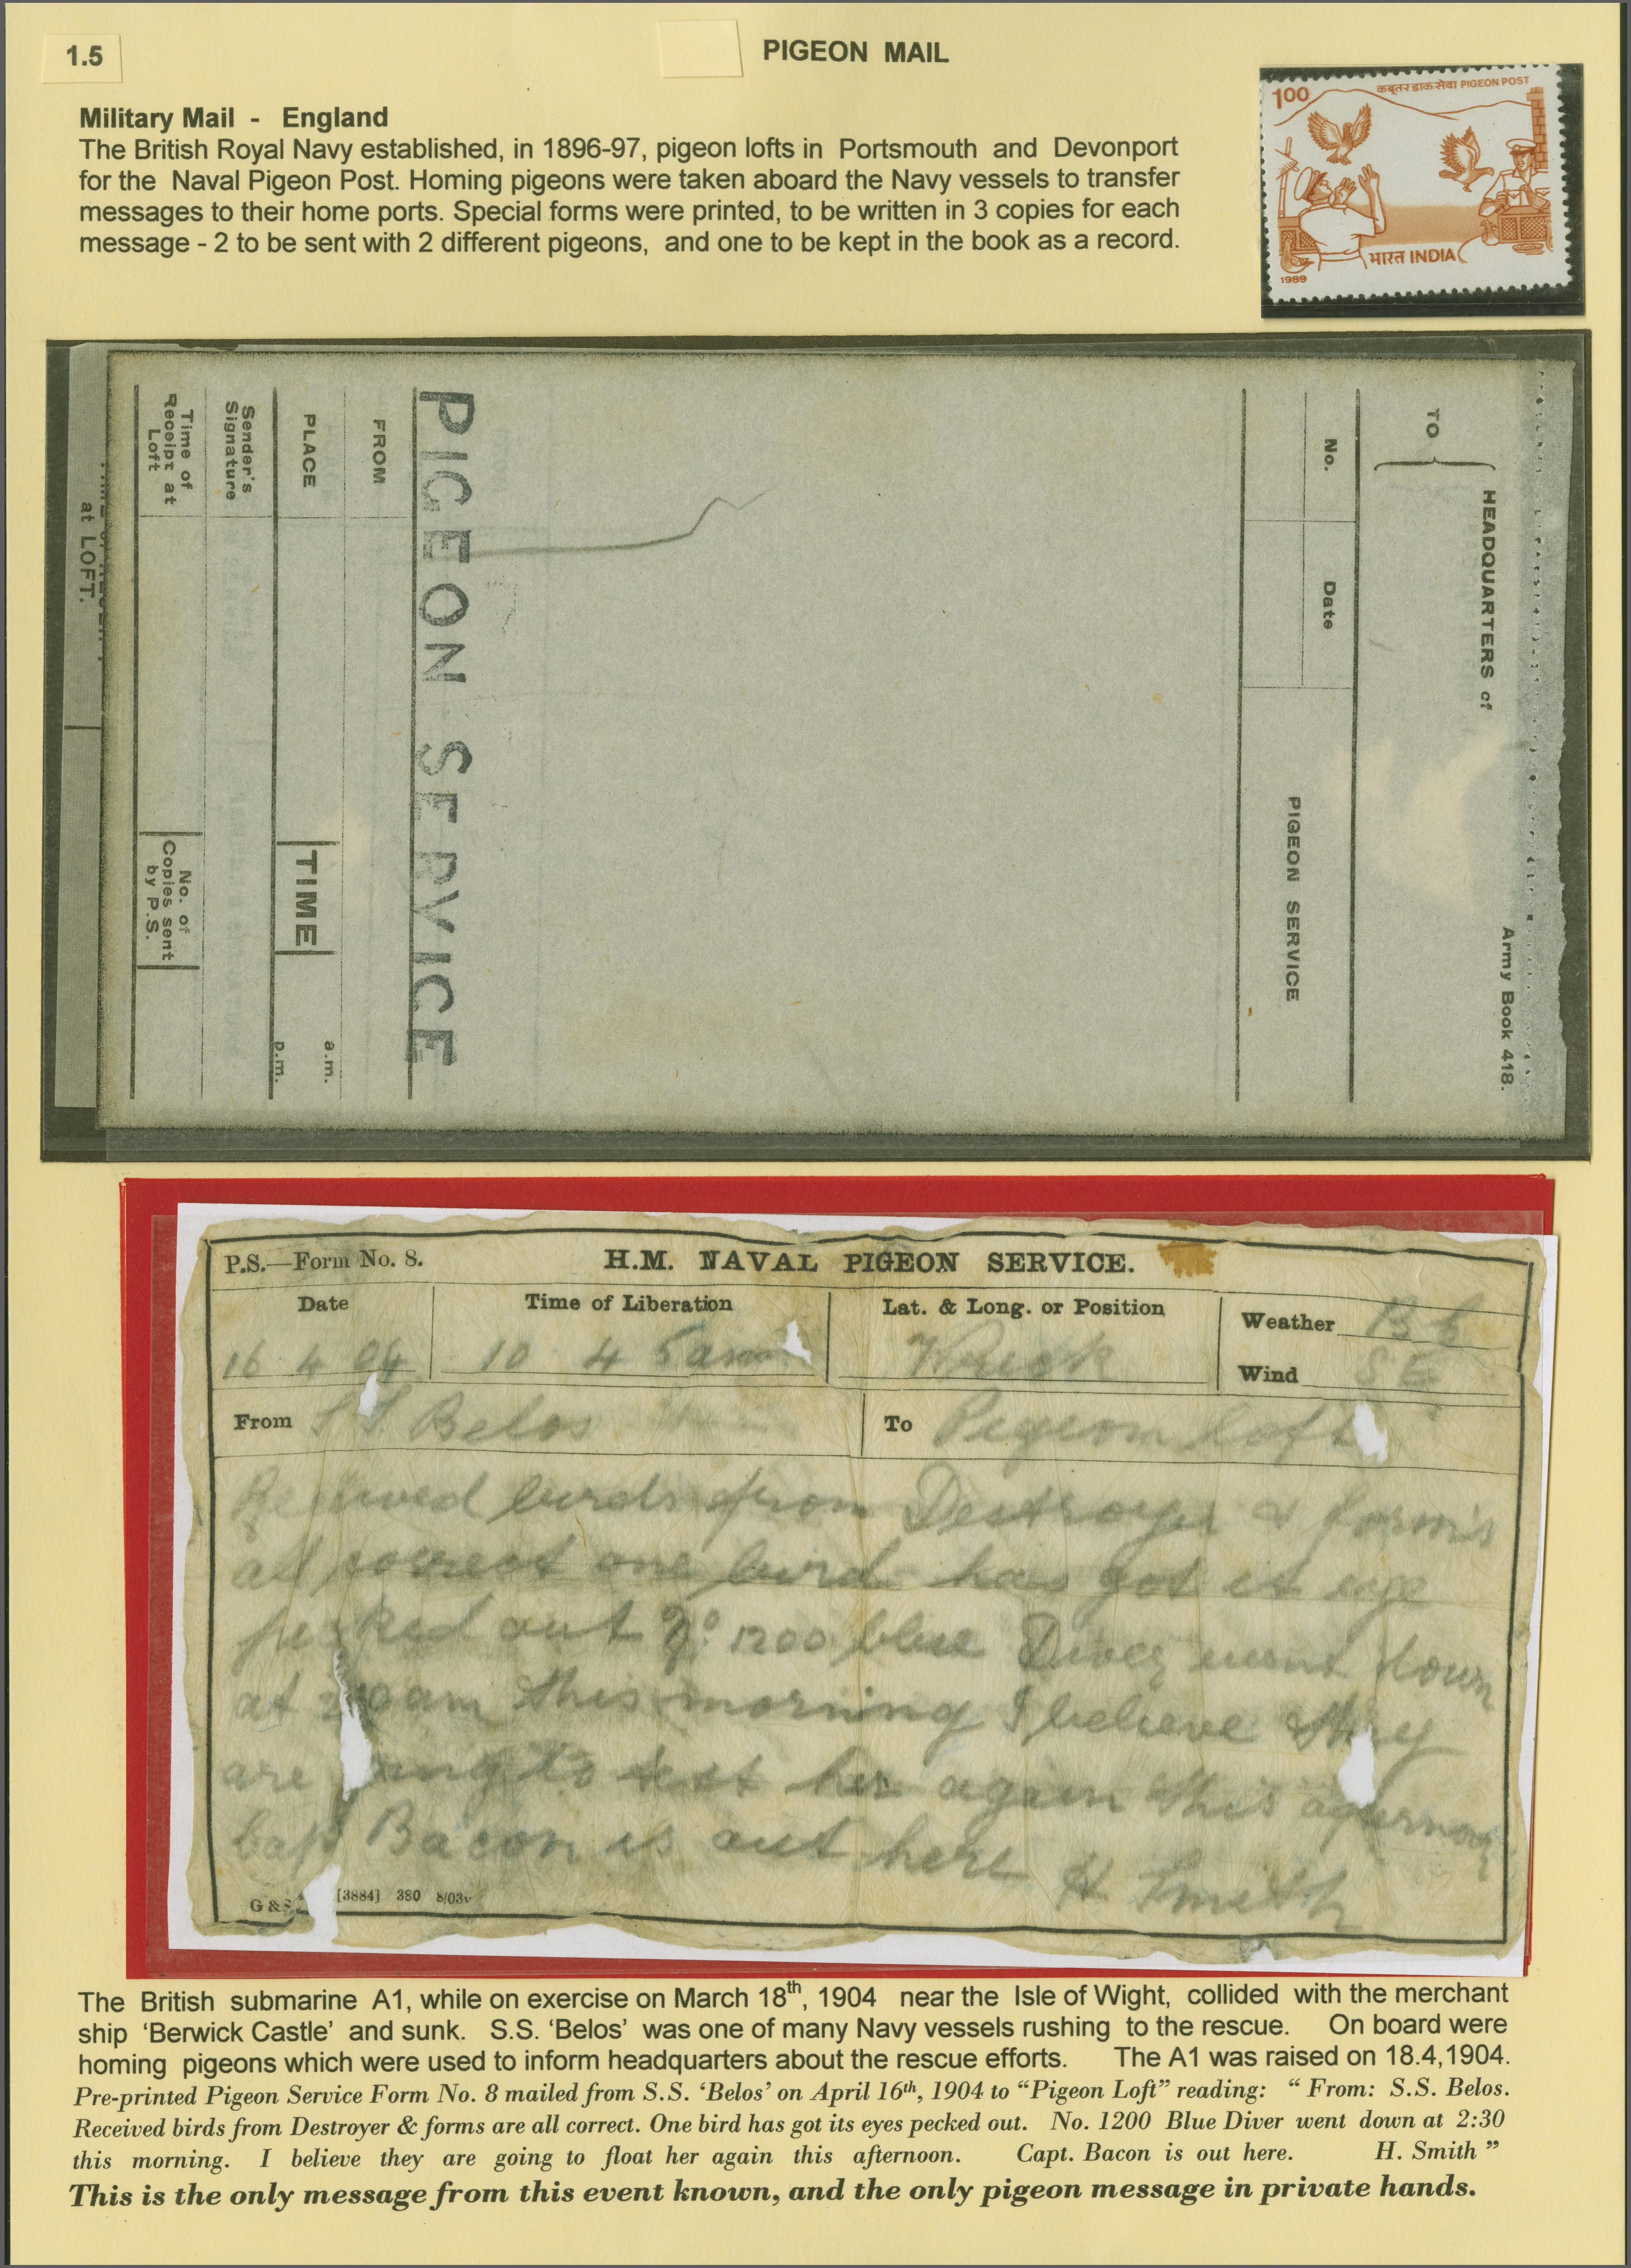 1.5
PIGEON MAIL
Military Mail - England
The British Royal Navy established, in 1896-97, pigeon lofts in Portsmouth and Devonport
for the Naval Pigeon Post. Homing pigeons were taken aboard the Navy vessels to transfer
messages to their home ports. Special forms were printed, to be written in 3 copies for each
message - 2 to be sent with 2 different pigeons, and one to be kept in the book as a record.
100
कबूतर डाक सेवा PIGEON POST
भारत INDIA
1989
Army Book 418.
TO
HEADQUARTERS of
No.
Date
PIGEON SERVICE
PIGEON SERVICE
FROM
PLACE
TIME
a.m.
p.m.
Sender's
Signature
Time of
Receipt at
Loft
No. of
Copies sent
by P.S.
at LOFT.
P.S.—Form No. 8.
H.M. NAVAL PIGEON SERVICE.
Date
Time of Liberation
Lat. & Long. or Position
Weather B b
16 4 04
10 4 5 am
Wreck
Wind S E
From S S Belos
To Pigeon loft
Received birds from Destroyer & forms
all correct one bird has got it eye
pecked out No 1200 blue Diver went down
at am this morning I believe they
are to her again this afternoon
Capt Bacon is out here H Smith
G & S [3884] 380 8/03
The British submarine A1, while on exercise on March 18th, 1904 near the Isle of Wight, collided with the merchant
ship ‘Berwick Castle’ and sunk. S.S. ‘Belos’ was one of many Navy vessels rushing to the rescue. On board were
homing pigeons which were used to inform headquarters about the rescue efforts. The A1 was raised on 18.4,1904.
Pre-printed Pigeon Service Form No. 8 mailed from S.S. ‘Belos’ on April 16th, 1904 to “Pigeon Loft” reading: “ From: S.S. Belos.
Received birds from Destroyer & forms are all correct. One bird has got its eyes pecked out. No. 1200 Blue Diver went down at 2:30
this morning. I believe they are going to float her again this afternoon. Capt. Bacon is out here. H. Smith ”
This is the only message from this event known, and the only pigeon message in private hands.